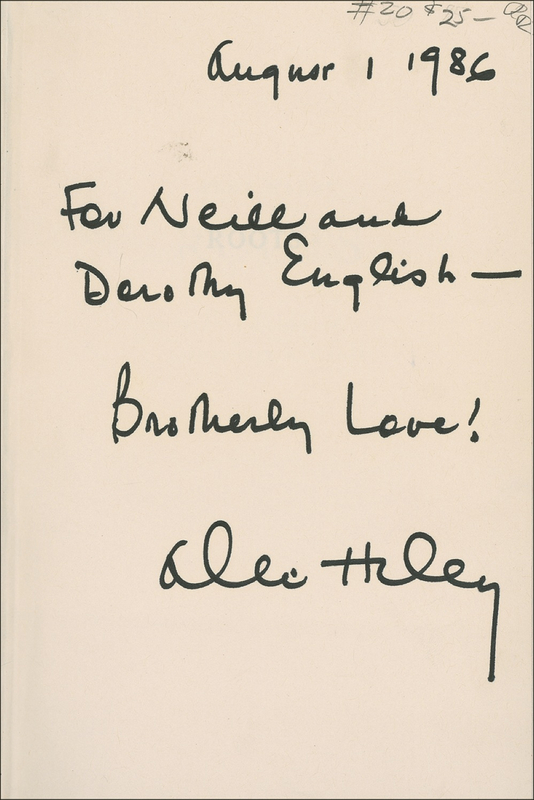 #20 $25-
August 1 1986
For Neill and
Dorothy English —
Brotherly Love!
Alex Haley